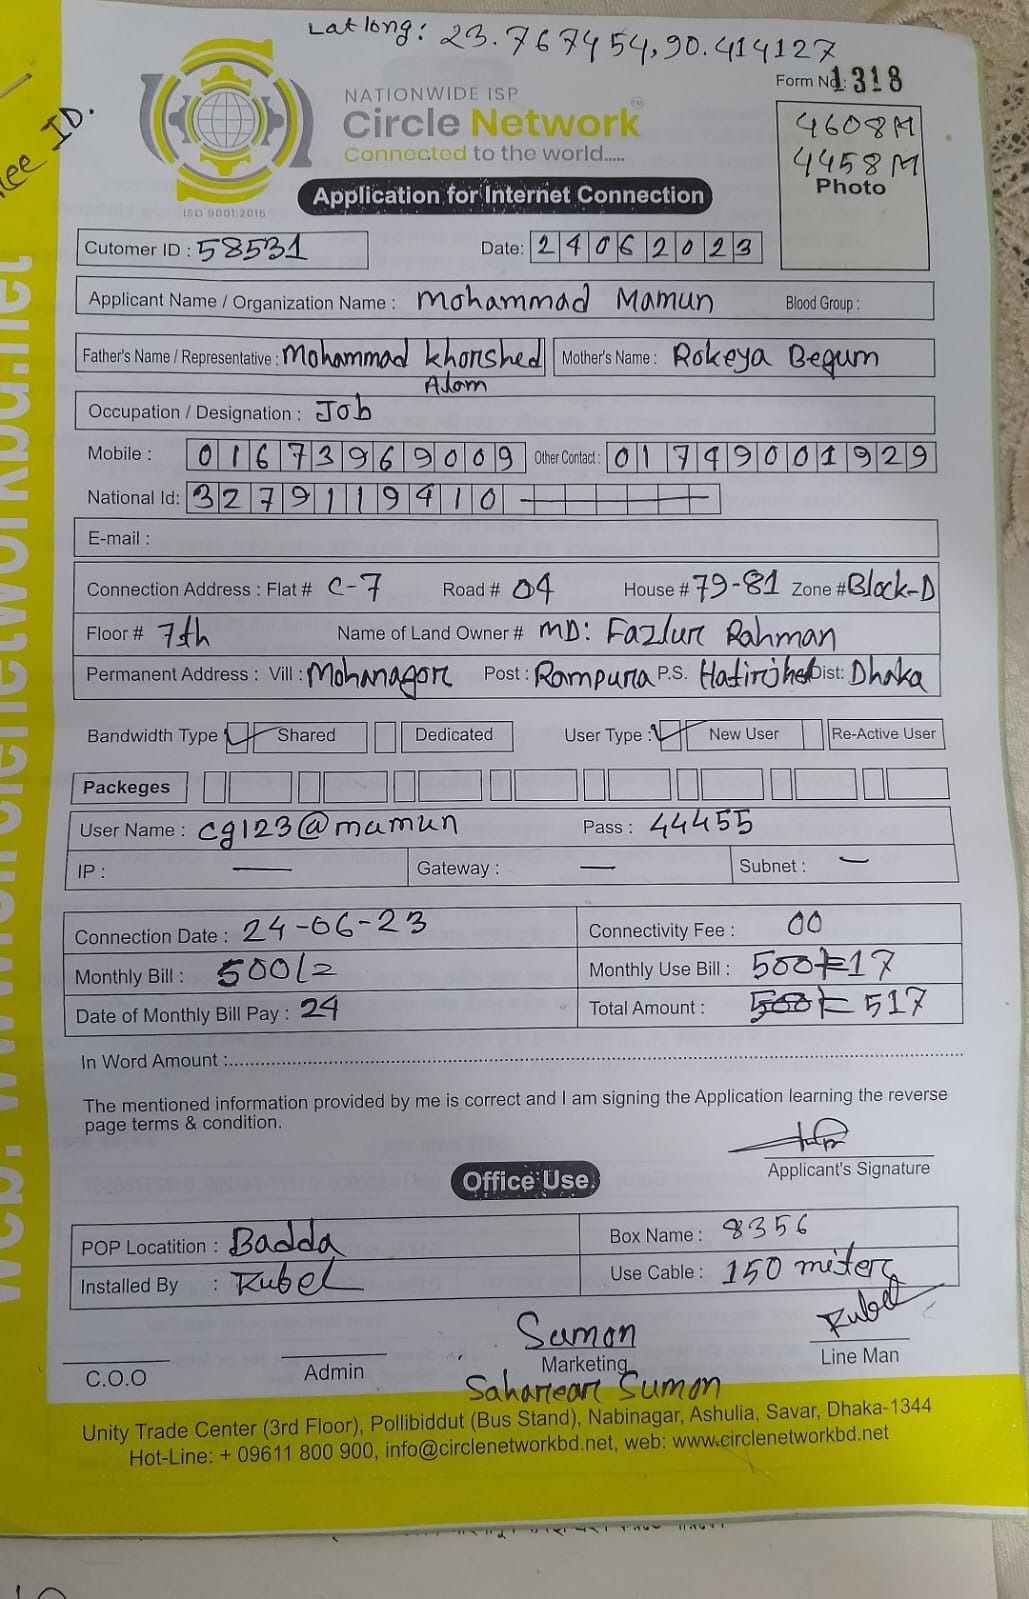 Lat long: 23.767454,90.414127
Form No: 1318
ID.
NATIONWIDE ISP
Circle Network
Connected to the world.....
ISO 9001:2015
4608M
4458M
Photo
Application for Internet Connection
Cutomer ID : 58531
Date: 24062023
Applicant Name / Organization Name : Mohammad Mamun Blood Group :
Father's Name / Representative : Mohammad Khorshed Alam
Mother's Name : Rokeya Begum
Occupation / Designation : Job
Mobile : 01673969009 Other Contact : 01749001929
National Id: 3279119410
E-mail :
Connection Address : Flat # C-7 Road # 04 House # 79-81 Zone # Block-D
Floor # 7th Name of Land Owner # MD: Fazlur Rahman
Permanent Address : Vill : Mohanagor Post : Rampura P.S. Hatirjhel Dist: Dhaka
Bandwidth Type Shared Dedicated User Type : New User Re-Active User
Packeges
User Name : cg123@mamun Pass : 44455
IP : — Gateway : — Subnet : —
Connection Date : 24-06-23 Connectivity Fee : 00
Monthly Bill : 500/= Monthly Use Bill : 500+17
Date of Monthly Bill Pay : 24 Total Amount : 500/= 517
In Word Amount :
The mentioned information provided by me is correct and I am signing the Application learning the reverse
page terms & condition.
Applicant's Signature
Office Use
POP Locatition : Badda Box Name : 8356
Installed By : Rubel Use Cable : 150 miter
Sumon Rubel
C.O.O Admin Marketing Line Man
Sahariear Sumon
Unity Trade Center (3rd Floor), Pollibiddut (Bus Stand), Nabinagar, Ashulia, Savar, Dhaka-1344
Hot-Line: + 09611 800 900, info@circlenetworkbd.net, web: www.circlenetworkbd.net